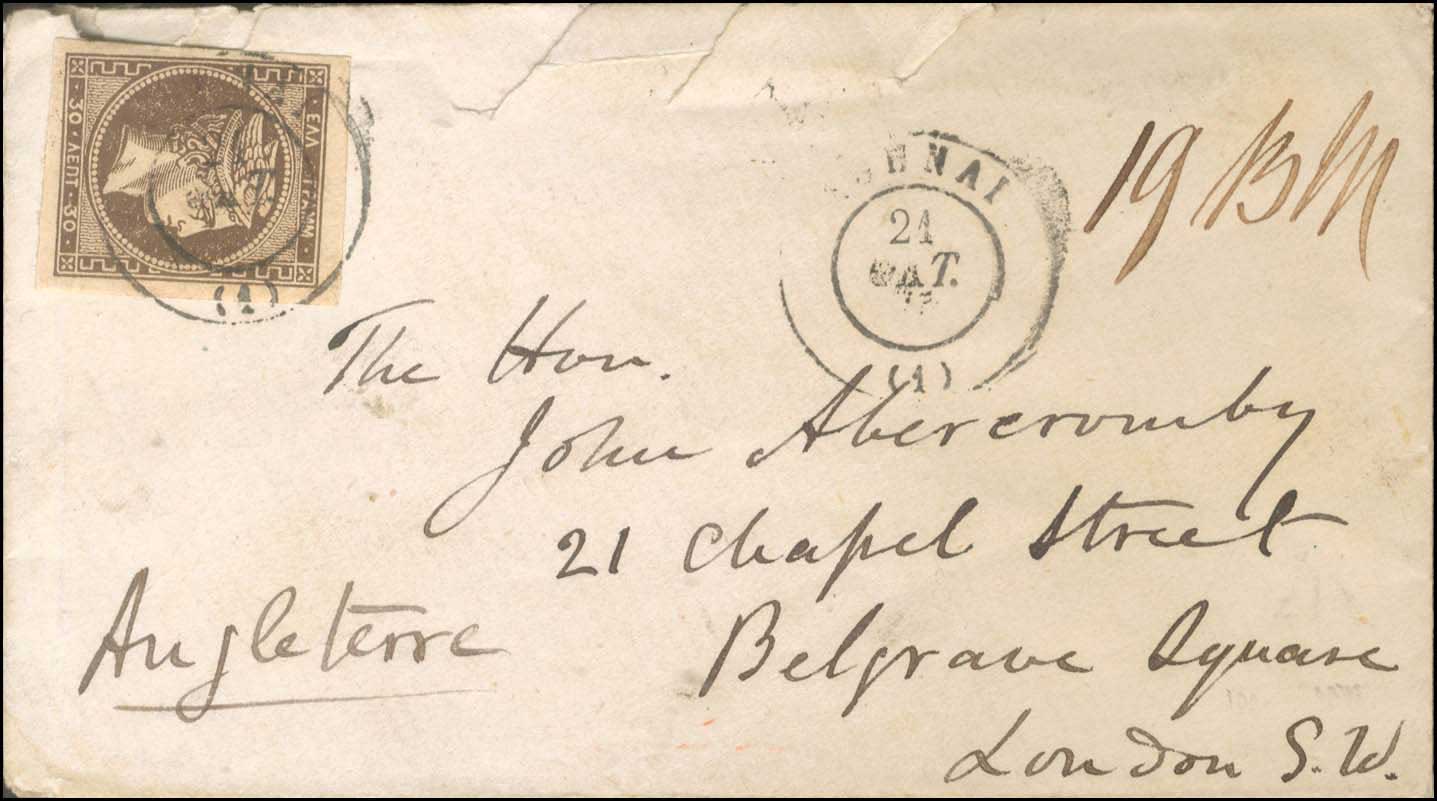 ΕΛΛ ΓΡΑΜΜ
30 · ΛΕΠΤ · 30
(1)
ΑΘΗΝΑΙ
21
ΟΚΤ.
(1)
19 BM
The Hon.
John Abercromby
21 Chapel Street
Belgrave Square
London S.W.
Angleterre